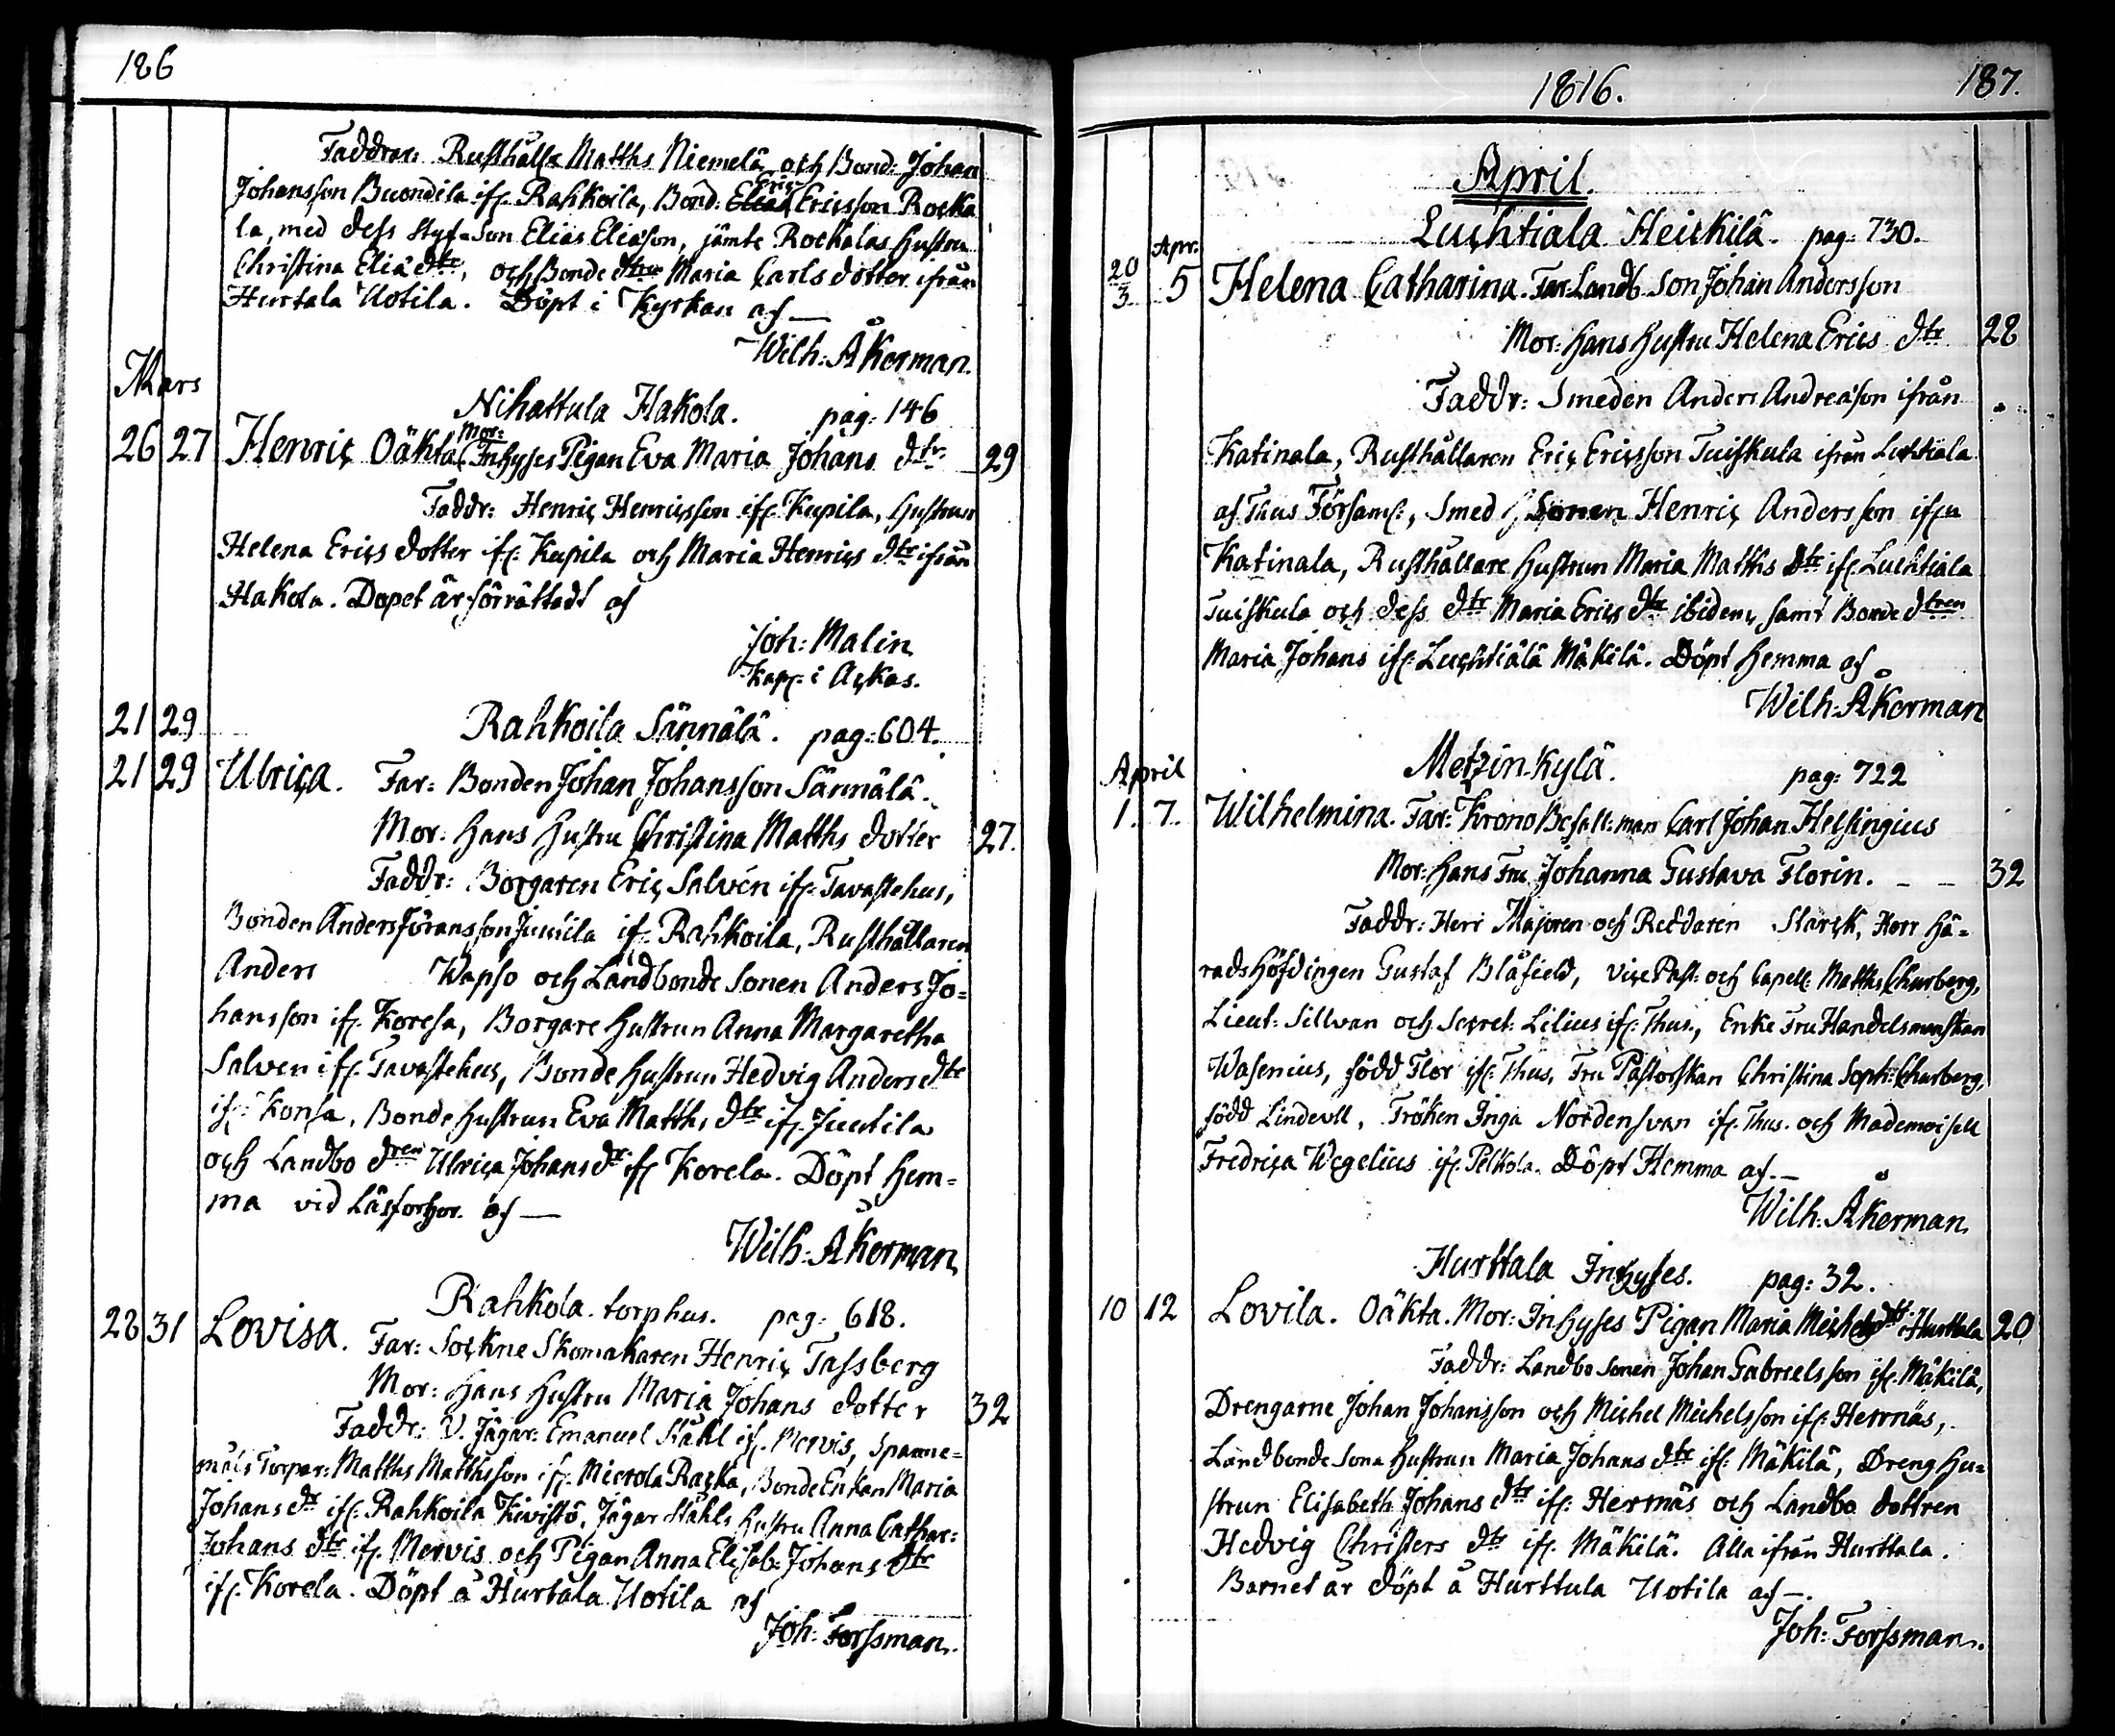 186
Faddrar: Rusthålls Matths Niemelä och Bond: Johan
Johansson Buondila if. Rahkoila, Bond: Elias Eric Ericsson Rocka
la, med dess Styf=Son Elias Eliæson, jämte Rockalas Hustru
Christina Eliæ dtr, och Bonde dtren Maria Carls dotter ifrån
Hurtala Uotila. Döpt i Kyrkan af —
Wilh: Åkerman.
Mars
Nihattula Hakola. pag: 146
26 27 Henric Oäkta Mor: Inhyses Pigan Eva Maria Johans dtr 29
Faddr: Henric Henricsson if. Kupila, Hustrun
Helena Erics dotter if. Kupila och Maria Henrics dtr ifrån
Hakola. Dopet är förrättadt af
Joh: Malin
Kap: i Ackas.
21 29 Rahkoila Sännälä. pag: 604.
21 29 Ulrica. Far: Bonden Johan Johansson Sännälä.
Mor: Hans Hustru Christina Matths dotter 27.
Faddr: Borgaren Eric Salvén if. Tavastehus,
Bonden Anders Göransson Juutila if. Rahkoila, Rusthållaren
Anders Wapso och Landbonde Sonen Anders Jo=
hansson if. Korela, Borgare Hustrun Anna Margaretha
Salven if. Tavastehus, Bonde Hustrun Hedvig Anders dtr
if. Konsa, Bonde Hustrun Eva Matths dtr if. Juutila
och Landbo dren Ulrica Johans dr if. Korela. Döpt Hem=
ma vid Läsforhor. af —
Wilh: Åkerman
Rahkola torphus. pag: 618.
28 31 Lovisa. Far: Sockne Skomakaren Henric Tassberg
Mor: Hans Hustru Maria Johans dotter 32
Faddr: V. Jägar: Emanuel Ståhl if. Mervis, Spanne=
måls Torpar: Matths Matthsson if. Mierola Racka, Bonde Enkan Maria
Johans dr if. Rahkoila Kivistö, Jägar Ståhls Hustru Anna Cathar:
Johans dtr if. Mervis och Pigan Anna Elisab: Johans dtr
if. Korela. Döpt å Hurtala Uotila af
Joh: Forssman.
1816. 187.
April.
Luchtiala Heickilä. pag: 730.
Apr.
20/3 5 Helena Catharina. Far: Landb. Son Johan Andersson
Mor: Hans Hustru Helena Erics dtr 28
Faddr: Smeden Anders Andreæson ifrån
Katinala, Rusthållaren Eric Ericsson Tuiskula ifrån Luchtiala
af Thus Församl:, Smed Sonen Henric Andersson ifrn
Katinala, Rusthållare Hustrun Maria Matths dtr if. Luchtiala
Tuiskula och dess dtr Maria Erics dtr ibidem, samt Bonde dtren
Maria Johans if. Luchtiälä Mäkilä. Döpt Hemma af
Wilh: Åkerman
April
Metzinkylä. pag: 722
1. 7. Wilhelmina. Far: Krono Befall:man Carl Johan Helsingius
Mor: Hans Fru Johanna Gustava Florin. – – 32
Faddr: Herr Majoren och Reddaren Starck, Herr Hä=
radshöfdingen Gustaf Blåfield, Vice Past: och Capell: Matths Churberg,
Lieut: Sillvan och Secret: Lilius if. Thus., Enke Fru Handelsmanskan
Wasenius, född Flor if. Thus, Fru Pastorskan Christina Soph: Churberg,
född Lindevll, Fröken Inga Nordensvan if. Thus. och Mademoisell
Fredrica Wegelius if. Pelkola. Döpt Hemma af. –
Wilh: Åkerman
Hurttala Inhyses. pag: 32.
10 12 Lovisa. Oäkta. Mor: Inhyses Pigan Maria Michels dtr i Hurttala 20
Faddr: Landbo Sonen Johan Gabrielsson if. Mäkilä,
Drengarne Johan Johansson och Michel Michelsson if. Herrnäs,
Landbonde Sona Hustrun Maria Johans dtr if. Mäkilä, Dreng Hu=
strun Elisabeth Johans dtr if. Hernäs och Landbo dottren
Hedvig Christers dtr if. Mäkilä. Alla ifrån Hurttala.
Barnet är döpt å Hurttula Uotila af —.
Joh: Forssman.